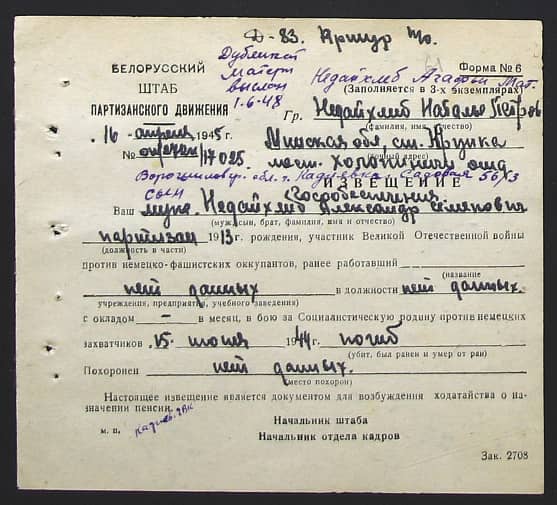 Д-83.
Дубликат
матери
выслан
1.6-48
Недайхлеб Агафьи Мат.
БЕЛОРУССКИЙ
ШТАБ
ПАРТИЗАНСКОГО ДВИЖЕНИЯ
Форма № 6
(Заполняется в 3-х экземплярах)
Гр. Недайхлеб Наталье Петров
(фамилия, имя, отчество)
„16 апреля 1945 г.
Минская обл, ст. Крупка
№ 17025.
мест. Холопиничи
(полный адрес)
обл. г. Кадиевка Садовая 56
ИЗВЕЩЕНИЕ
сын
Ваш муж. Недайхлеб Александр Семенович
(муж, сын, брат, фамилия, имя и отчество)
партизан 1913 г. рождения, участник Великой Отечественной войны
(должность в части)
против немецко-фашистских оккупантов, ранее работавший
(название
нет данных в должности нет данных.
учреждения, предприятия, учебного заведения)
с окладом — в месяц, в бою за Социалистическую родину против немецких
захватчиков „15. июня 1944 г. погиб
(убит, был ранен и умер от ран)
Похоронен нет данных.
(место похорон)
Настоящее извещение является документом для возбуждения ходатайства о на-
значении пенсии.
м. п.
Начальник штаба
Начальник отдела кадров
Зак. 2708